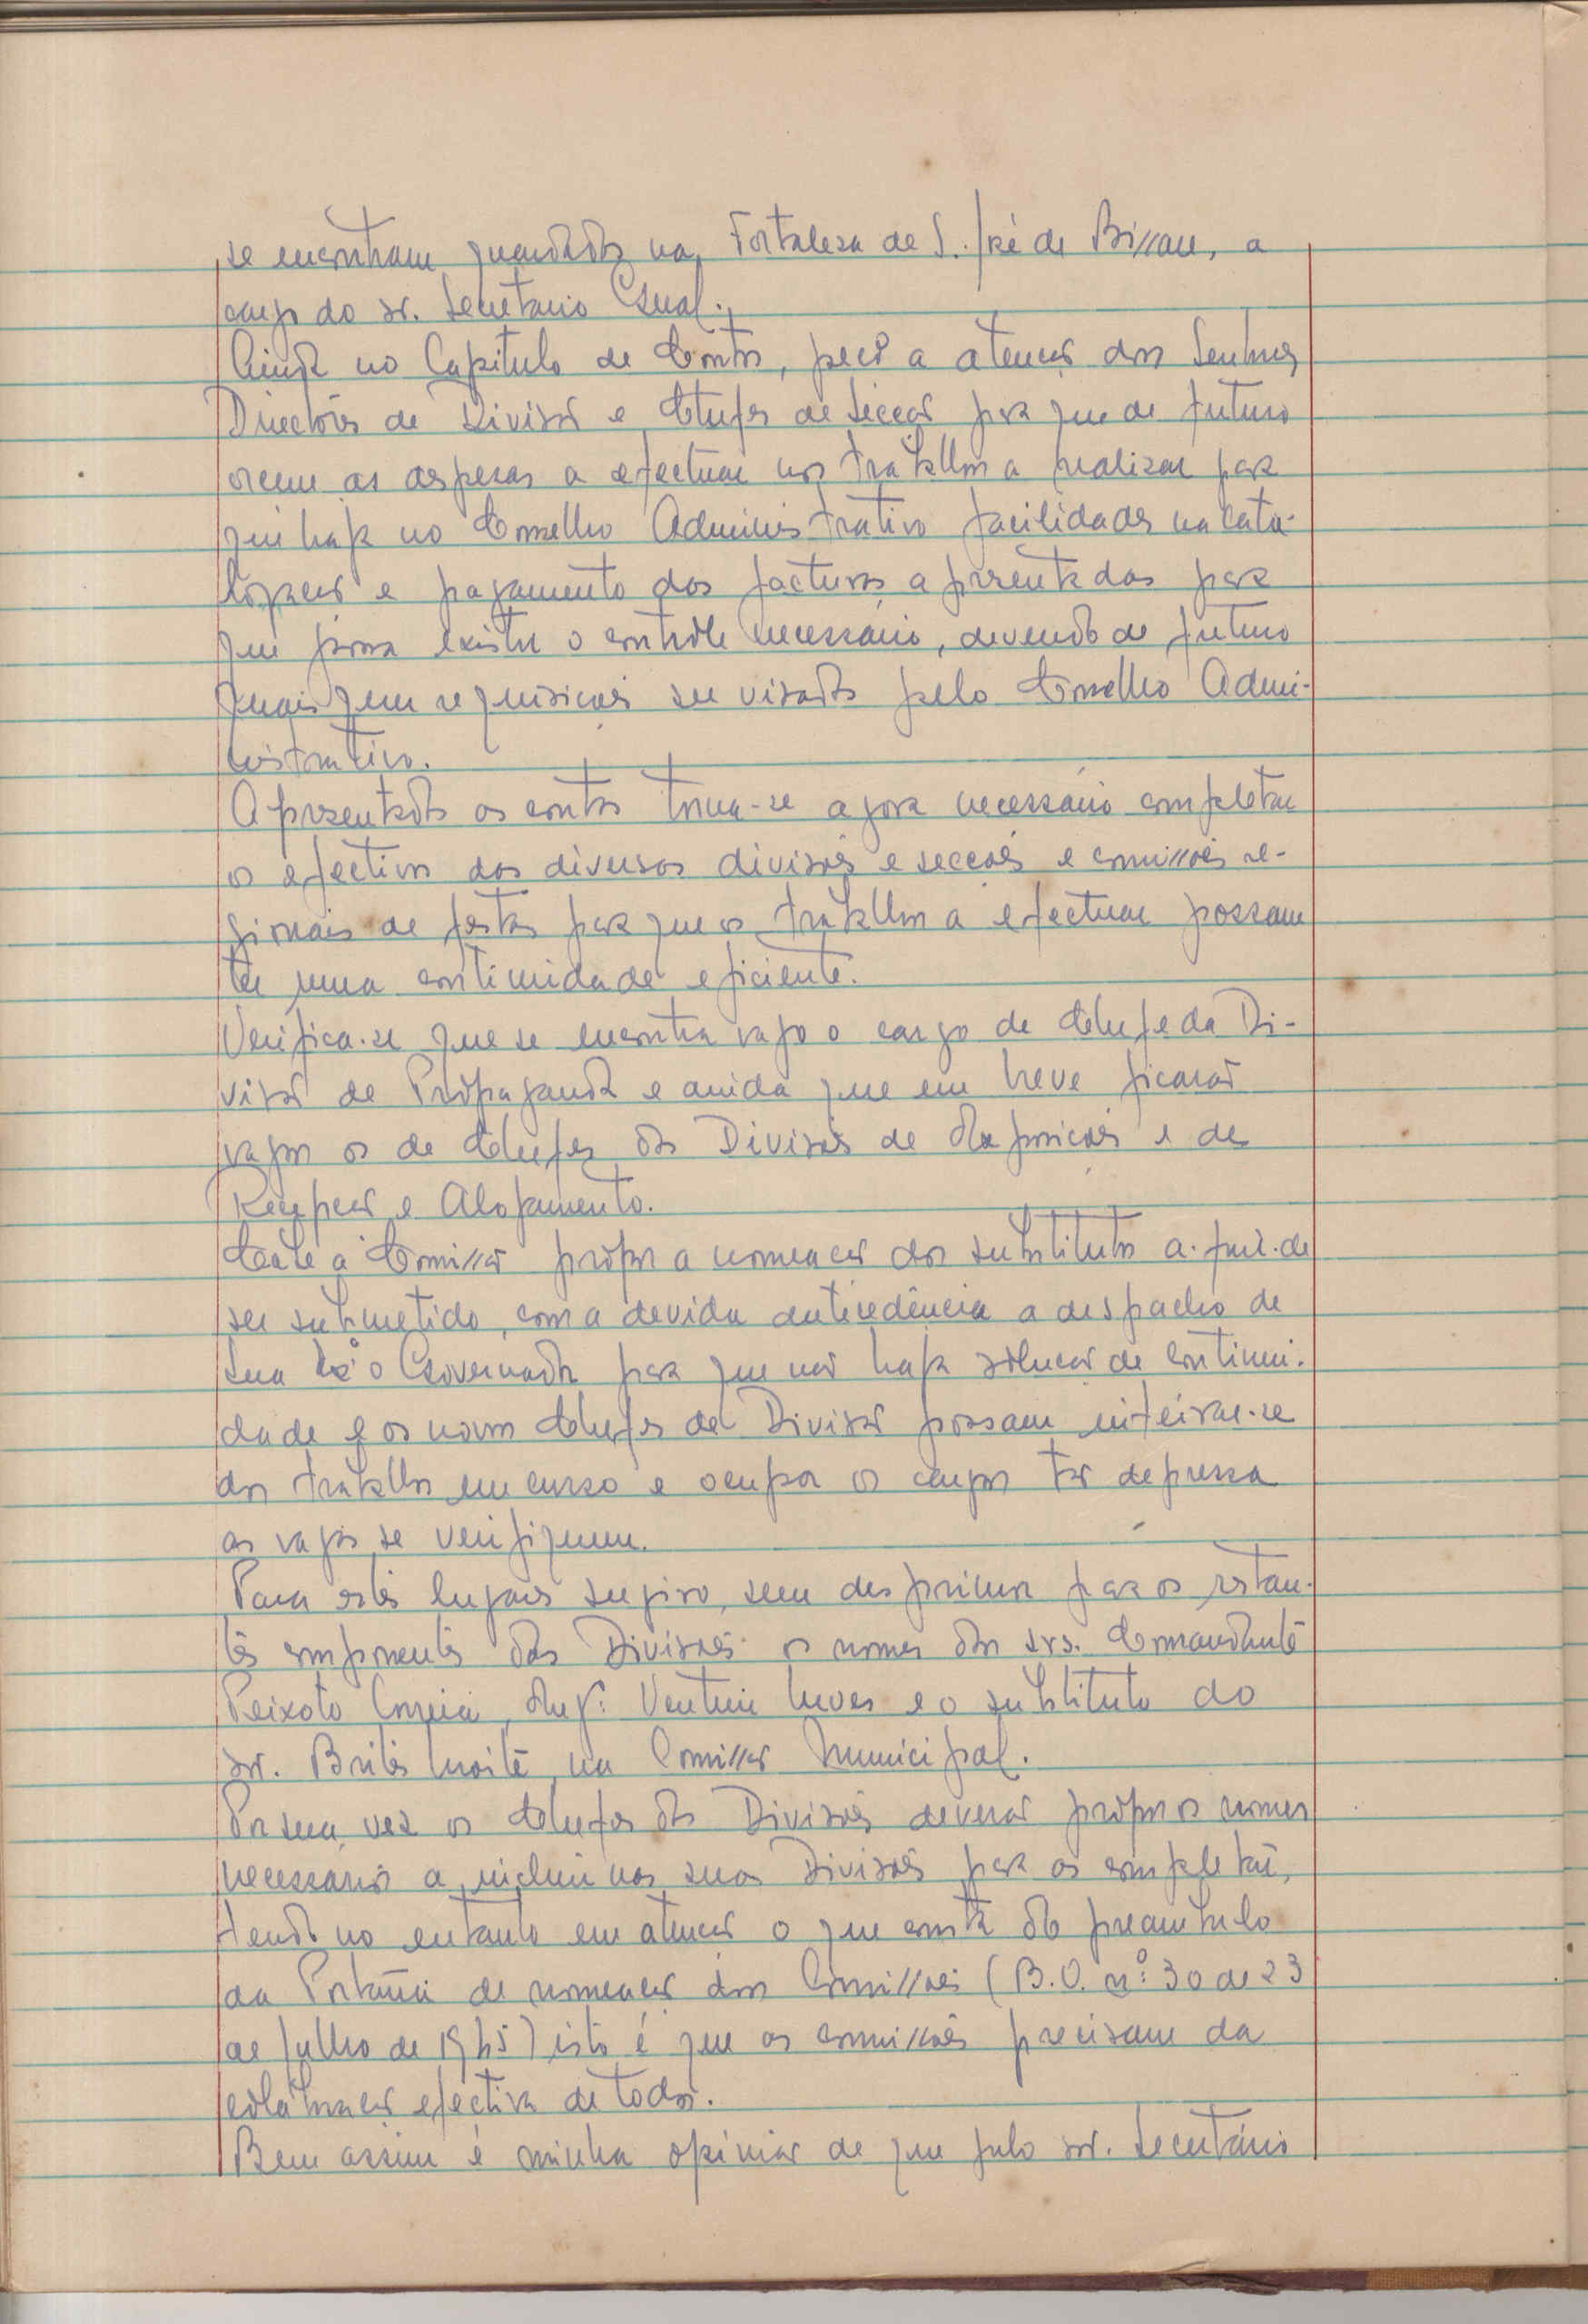 se encontram guardados na Fortaleza de S. José de Bissau, a
cargo do sr. Secretario Geral.
Ainda no Capitulo de Contas, peço a atenção dos Senhores
Directores de Divisão e Chefes de Secção para que de futuro
orcem as despesas a efectuar nos trabalhos a realizar para
que haja no Conselho Administrativo facilidades na cata-
logação e pagamento das facturas apresentadas para
que possa existir o contrôle necessário, devendo de futuro
quaisquer requisições ser visadas pelo Conselho Admi-
nistrativo.
Apresentadas as contas torna-se agora necessário completar
os efectivos das diversas divisões e secções e comissões re-
gionais de festas para que os trabalhos a efectuar possam
ter uma continuidade eficiente.
Verifica-se que se encontra vago o cargo de Chefe da Di-
visão de Propaganda e ainda que em breve ficarão
vagos os de Chefes das Divisões de Exposições e de
Recepção e Alojamento.
Cabe à Comissão propor a nomeação dos substitutos a-fim-de
ser submetido, com a devida antecedência a despacho de
Sua Exª o Governador para que não haja solução de continui-
dade e os novos Chefes de Divisão possam inteirar-se
dos trabalhos em curso e ocupar os cargos tão depressa
as vagas se verifiquem.
Para estes lugares sugiro, sem desprimor para os restan-
tes componentes das Divisões os nomes dos srs. Comandante
Peixoto Correia, Engº Ventura Neves e o substituto do
sr. Brites Moita na Comissão Municipal.
Por sua vez os Chefes das Divisões deverão propor os nomes
necessários a incluir nas suas Divisões para as completar,
tendo no entanto em atenção o que consta do preambulo
da Portaria de nomeação das Comissões (B.O. nº 30 de 23
de Julho de 1945) isto é que as comissões precisam da
colaboração efectiva de todos.
Bem assim é minha opinião de que pelo sr. Secretário